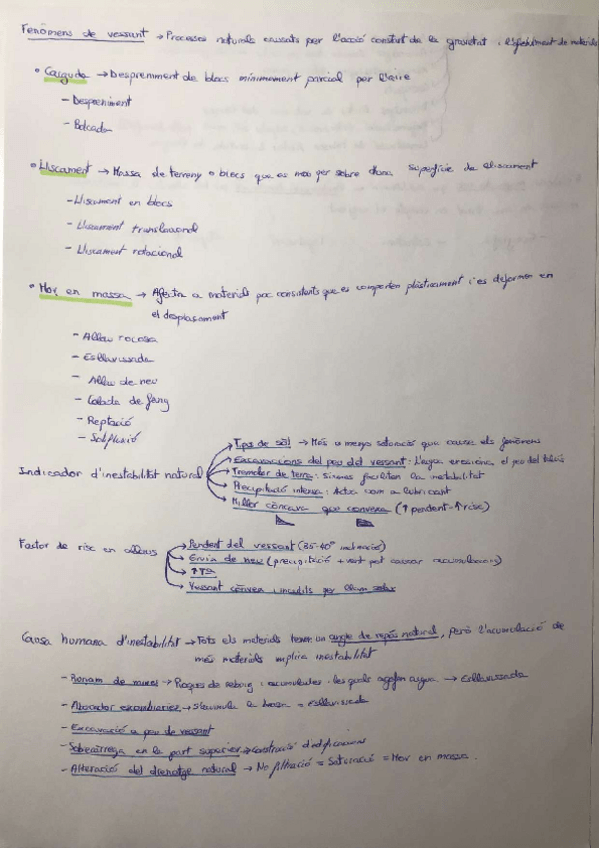 Fenòmens de vessant → Processos naturals causats per l'acció constant de la gravetat i l'afebliment de materials
• Caiguda → Despreniment de blocs mínimament parcial per l'aire
- Despreniment
- Bolcada
• Lliscament → Massa de terreny o blocs que es mou per sobre d'una superfície de lliscament
- Lliscament en blocs
- Lliscament translacional
- Lliscament rotacional
• Mov en massa → Afecta a materials poc consistents que es comporten plàsticament i es deformen en
el desplaçament
- Allau rocosa
- Esllavissada
- Allau de neu
- Colada de fang
- Reptació
- Solifluxió
Indicador d'inestabilitat natural
Tipus de sòl → Més o menys saturació que causa els fenòmens
Excavacions del peu del vessant: L'aigua erosiona el peu del
Tremolor de terra: sismes faciliten la inestabilitat
Precipitació intensa: Actua com a lubricant
Millor còncava que convexa (↑pendent-↑risc)
Factor de risc en allaus
Pendent del vessant (35-40° inclinació)
Gruix de neu (precipitació + vent pot causar acumulacions)
↑Tª
Vessant convex i inclinats per llum solar
Causa humana d'inestabilitat → Tots els materials tenen un angle de repòs natural, però l'acumulació de
més materials implica inestabilitat
- Runam de mines → Roques de rebuig acumulades, les quals agafen aigua → Esllavissada
- Abocador escombraries → S'acumula la massa = esllavissada
- Excavació a peu de vessant
- Sobecàrrega en la part superior → Construcció d'edificacions
- Alteració del drenatge natural → No filtració = Saturació = Mov en massa.